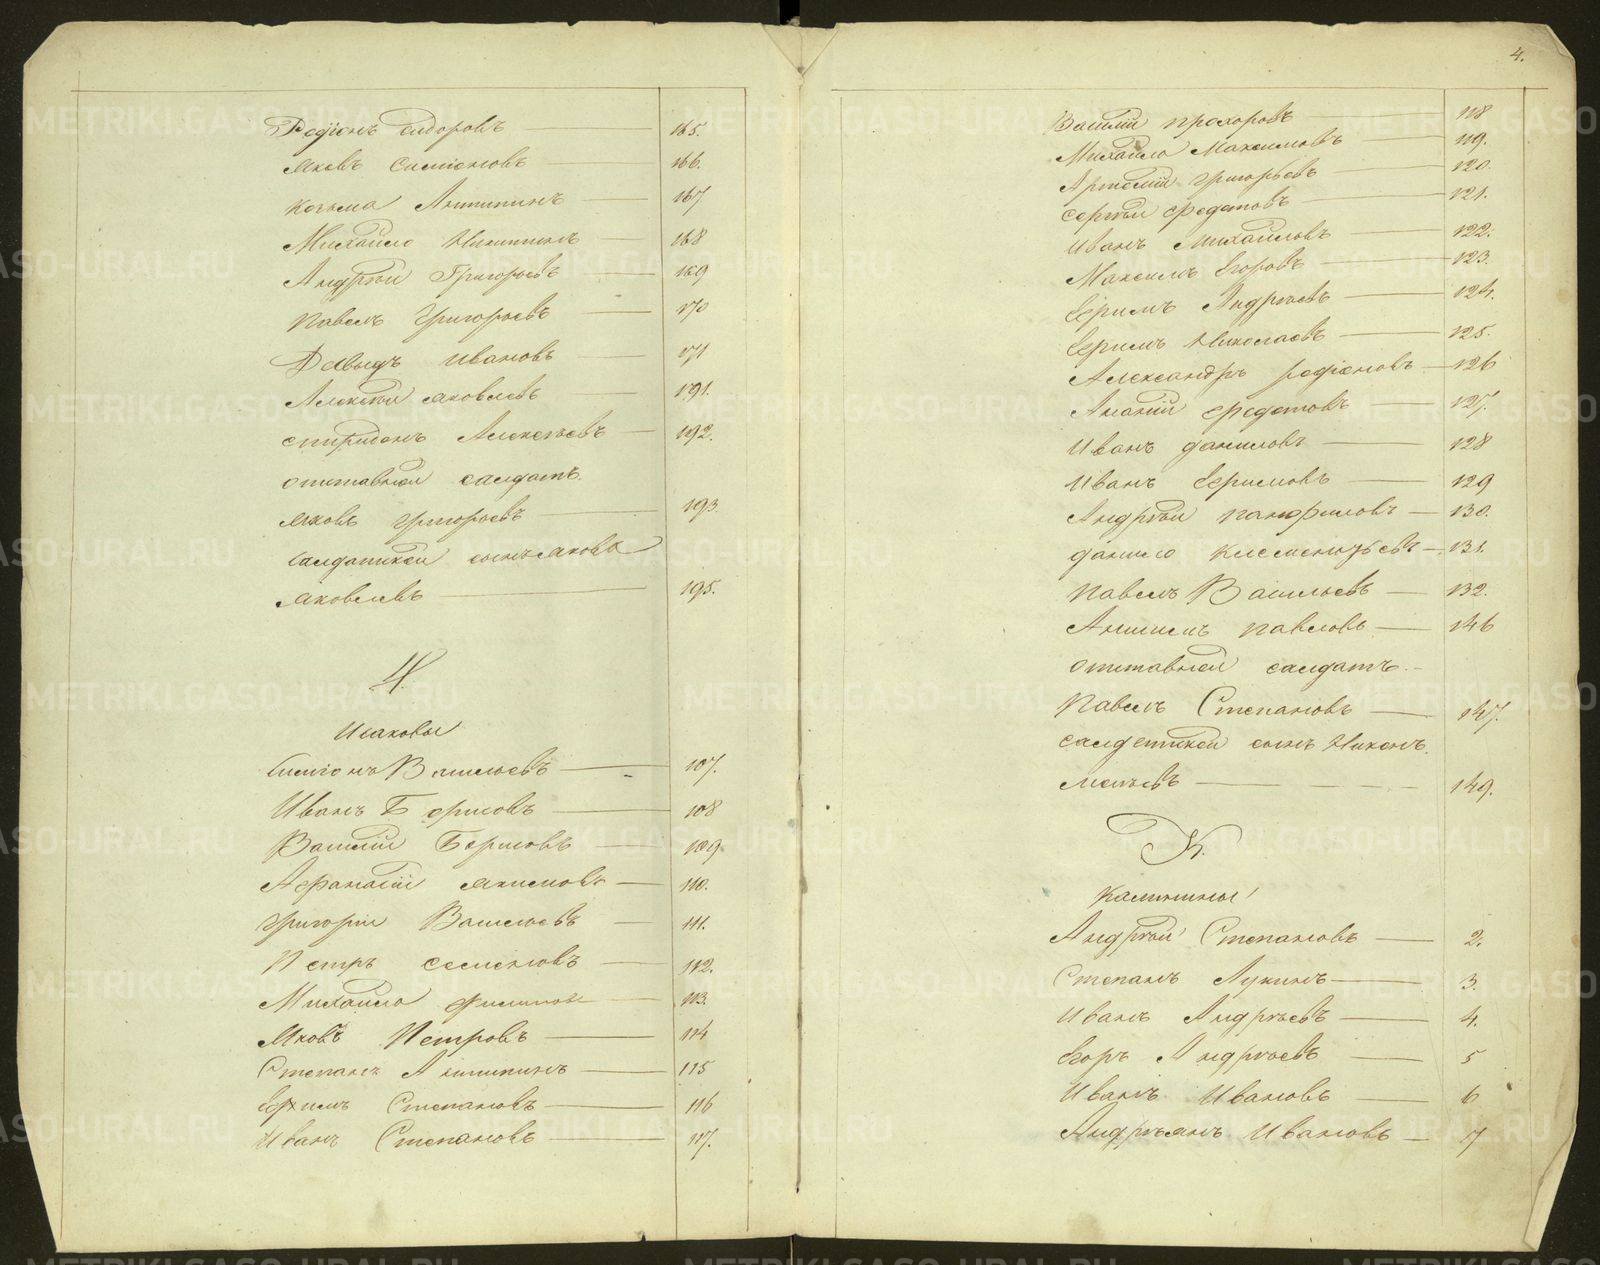 Родіонъ Сидоровъ 165.
Яковъ Симіоновъ 166.
Козьма Антипинъ 167
Михайло Никитинъ 168
Андрѣй Григорьевъ 169
Павелъ Григорьевъ 170
Давыдъ Ивановъ 171
Алексѣй Яковлевъ 191.
Спиридонъ Алексѣевъ 192.
отставной салдатъ
Яковъ Григорьевъ 193
салдатской сынъ Якова
Яковлевъ 195.
И.
Исаковы
Симіонъ Васильевъ 107.
Иванъ Борисовъ 108
Василій Борисовъ 109
Афанасій Якимовъ 110.
Григорій Васильевъ 111.
Петръ Семеновъ 112.
Михайло Филипов 113.
Яковъ Петровъ 114
Степанъ Антипинъ 115
Ефимъ Степановъ 116
Иванъ Степановъ 117.
4.
Василій Прохоровъ 118
Михайло Максимовъ 119.
Артемій Григорьевъ 120.
Сергѣй Федотовъ 121.
Иванъ Михайловъ 122.
Максимъ Егоровъ 123.
Ефимъ Андрѣевъ 124.
Ефимъ Николаевъ 125.
Александръ Родіоновъ 126
Ананій Федотовъ 127.
Иванъ Даниловъ 128
Иванъ Ефимовъ 129
Андрѣй Панфиловъ 130.
Данило Клементьевъ 131.
Павелъ Васильевъ 132.
Анисимъ Павловъ 146
отставной салдатъ
Павелъ Степановъ 147.
салдатской сынъ Никонъ
149.
К.
Калинины
Андрѣй Степановъ 2.
Степанъ Лукинъ 3.
Иванъ Андрѣевъ 4.
Егоръ Андрѣевъ 5
Иванъ Ивановъ 6
Андрѣянъ Ивановъ 7
METRIKI.GASO-URAL.RU